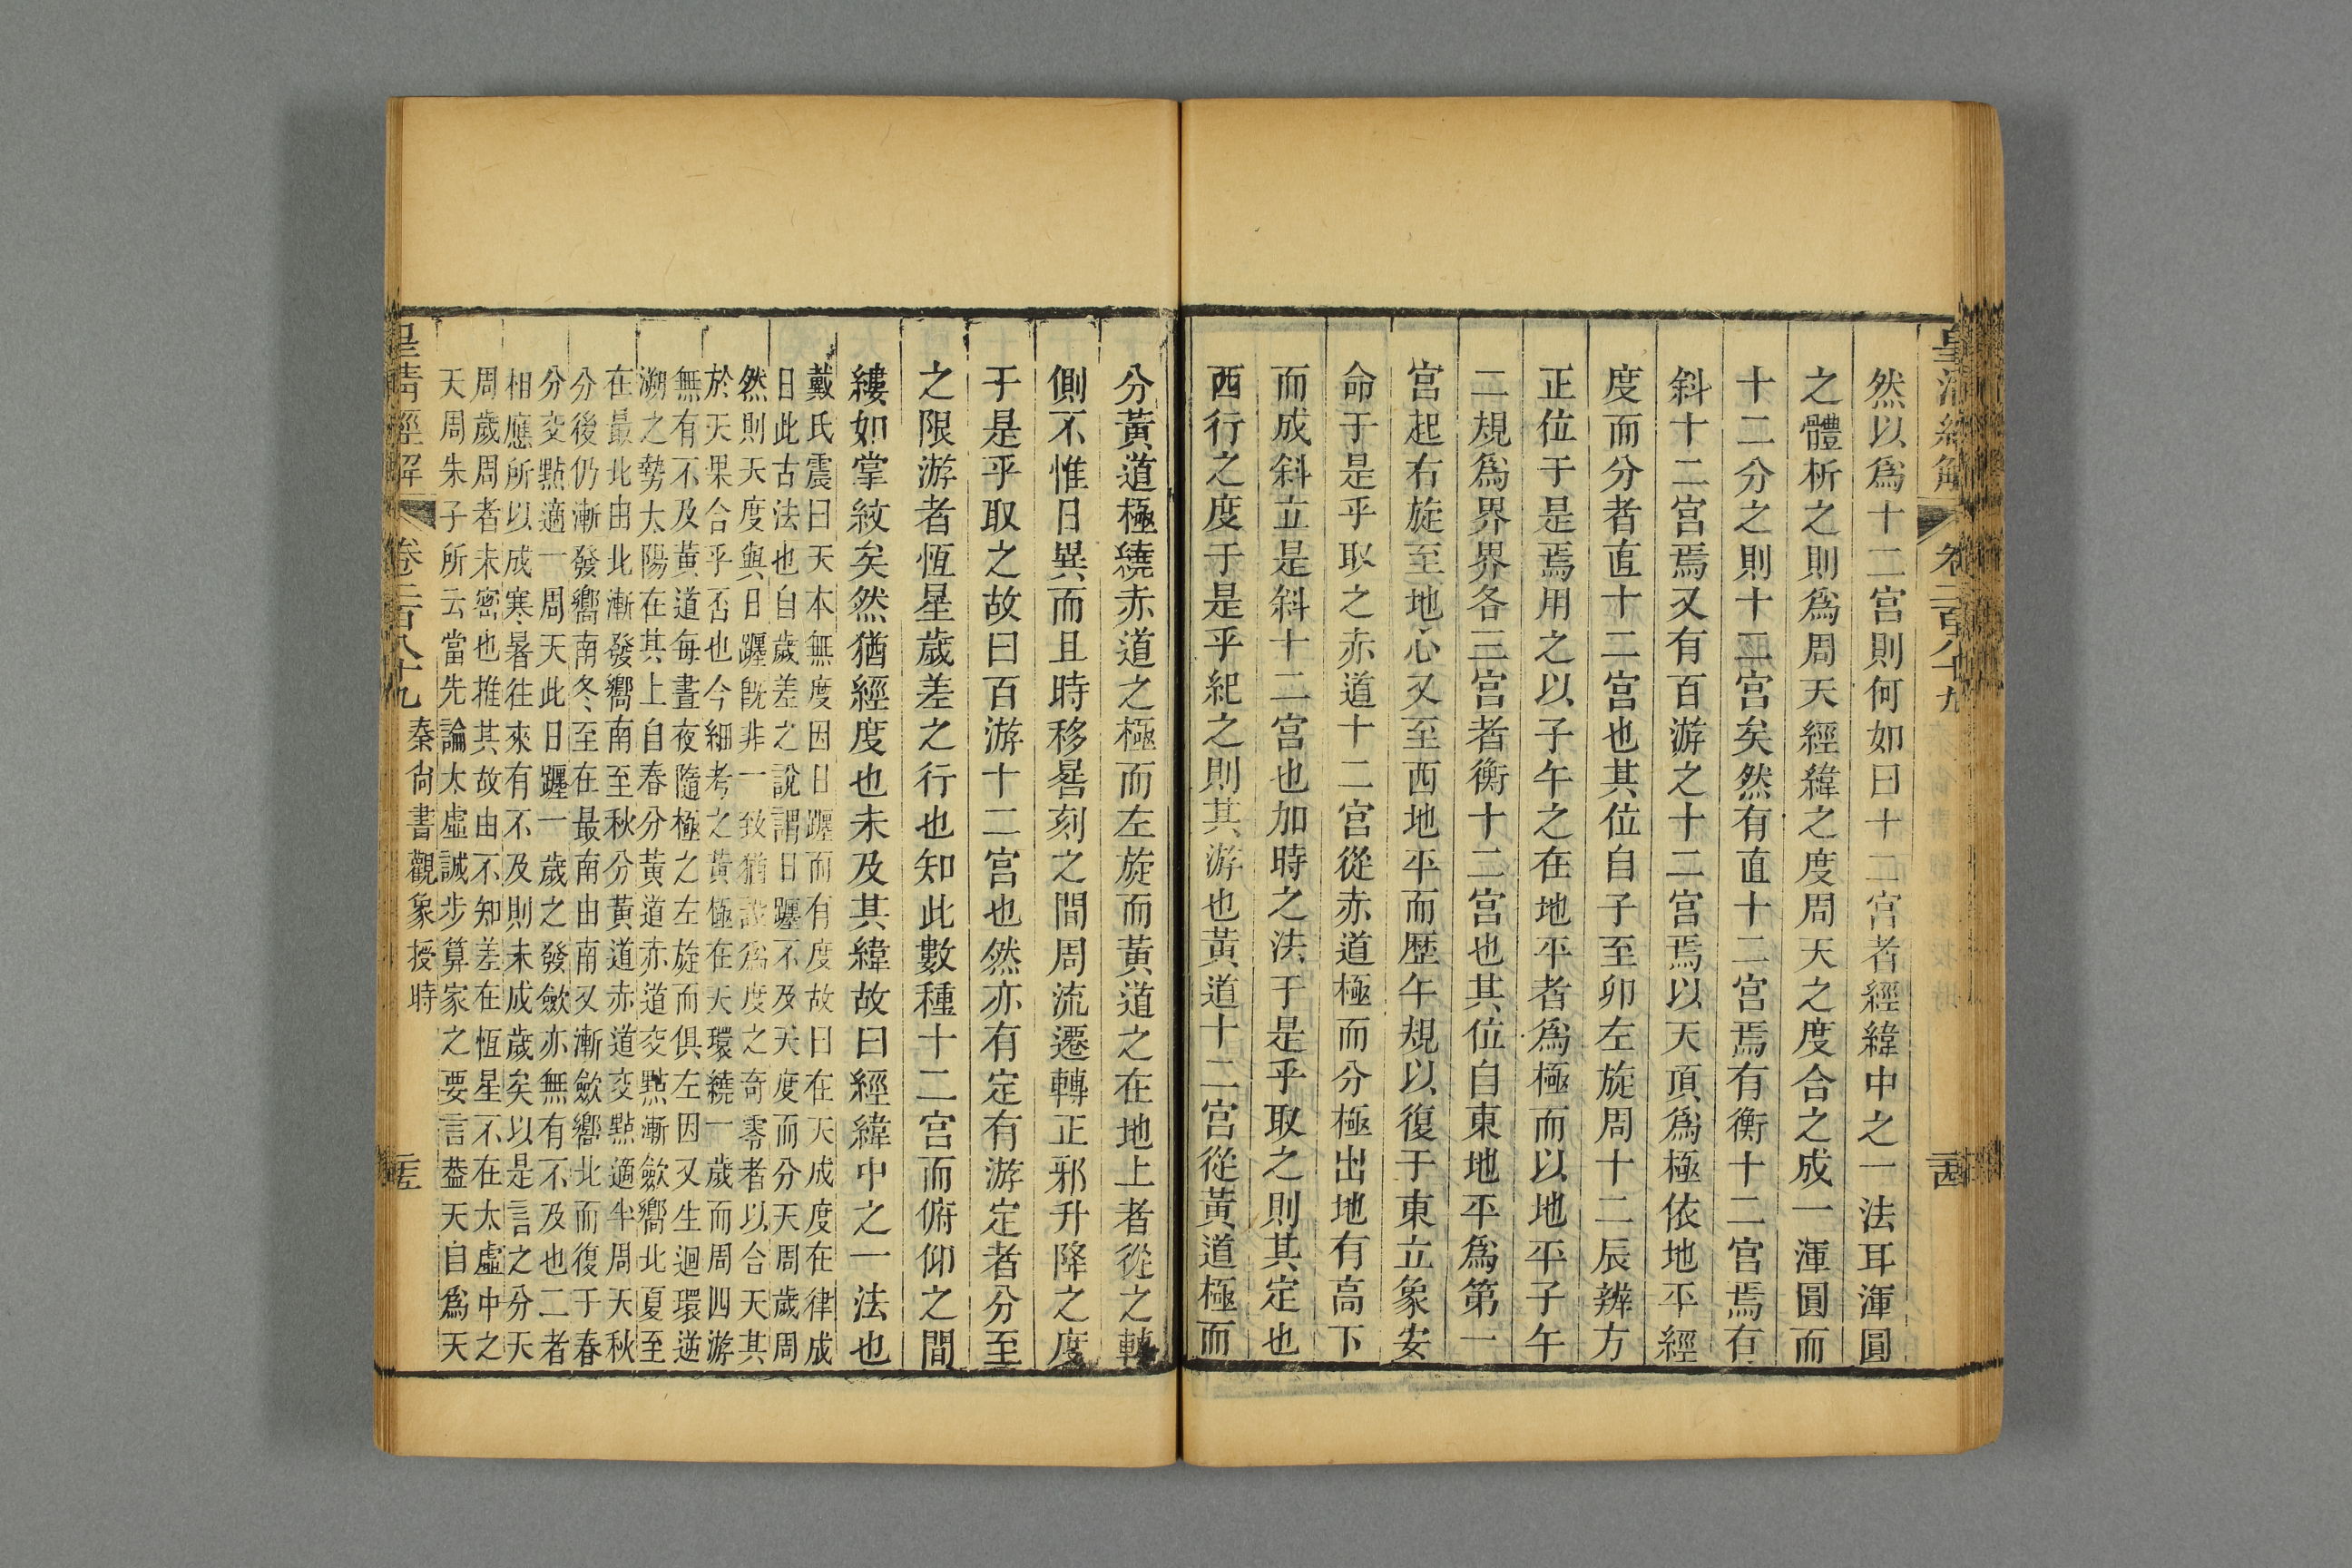 皇清經解 卷二百八十九
然以爲十二宮則何如曰十二宮者經緯中之一法耳渾圓
之體析之則爲周天經緯之度周天之度合之成一渾圓而
十二分之則十二宮矣然有直十二宮焉有衡十二宮焉有
斜十二宮焉又有百游之十二宮焉以天頂爲極依地平經
度而分者直十二宮也其位自子至卯左旋周十二辰辨方
正位于是焉用之以子午之在地平者爲極而以地平子午
二規爲界界各三宮者衡十二宮也其位自東地平爲第一
宮起右旋至地心又至西地平而歷午規以復于東立象安
命于是乎取之赤道十二宮從赤道極而分極出地有高下
而成斜立是斜十二宮也加時之法于是乎取之則其定也
西行之度于是乎紀之則其游也黃道十二宮從黃道極而
分黃道極繞赤道之極而左旋而黃道之在地上者從之轉
側不惟日異而且時移晷刻之間周流遷轉正邪升降之度
于是乎取之故曰百游十二宮也然亦有定有游定者分至
之限游者恆星歲差之行也知此數種十二宮而俯仰之間
縷如掌紋矣然猶經度也未及其緯故曰經緯中之一法也
戴氏震曰天本無度因日躔而有度故曰在天成度在律成
日此古法也自歲差之說謂日躔不及天度而分天周歲周
然則天度與日躔旣非一致猶設爲度之奇零者以合天其
於天果合乎否也今細考之黃極在天環繞一歲而周四游
無有不及黃道每晝夜隨極之左旋而俱左因又生迴環逆
溯之勢太陽在其上自春分黃道亦道交點漸斂嚮北夏至
在最北由北漸發嚮南至秋分黃道赤道交點適半周天秋
分後仍漸發嚮南冬至在最南由南又漸斂嚮北而復于春
分交點適一周天此日躔一歲之發斂亦無有不及也二者
相應所以成寒暑往來有不及則未成歲矣以是言之分天
周歲周者未密也推其故由不知差在恆星不在太虛中之
天周朱子所云當先論太虛誠步算家之要言葢天自爲天
皇清經解 卷二百八十九 秦尙書觀象授時